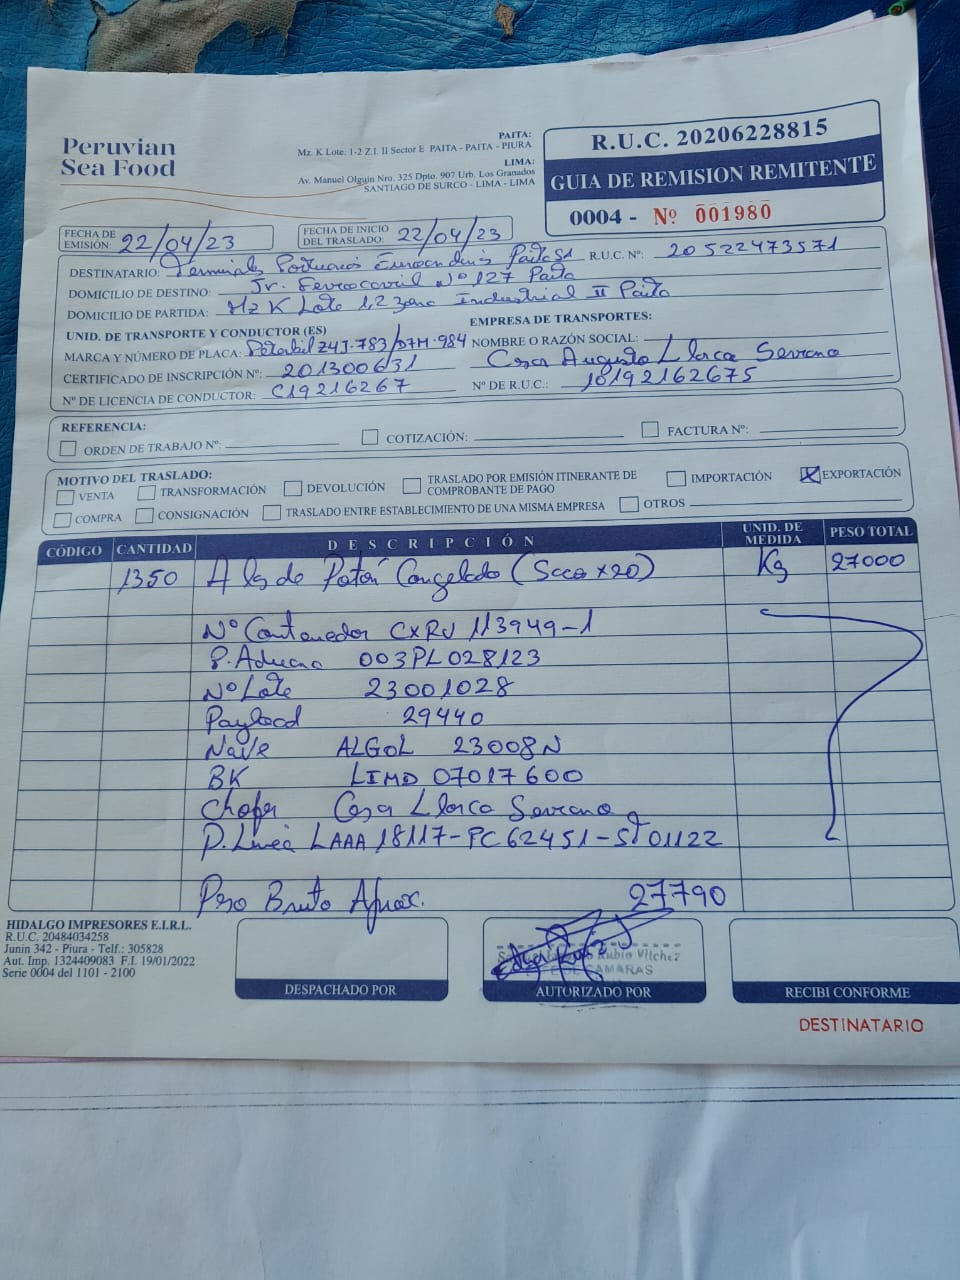 Peruvian
Sea Food
PAITA:
Mz. K Lote. 1-2 Z.I. II Sector E PAITA - PAITA - PIURA
LIMA:
Av. Manuel Olguin Nro. 325 Dpto. 907 Urb. Los Granados
SANTIAGO DE SURCO - LIMA - LIMA
R.U.C. 20206228815
GUIA DE REMISION REMITENTE
0004 - Nº 001980
FECHA DE EMISIÓN: 22/04/23 FECHA DE INICIO DEL TRASLADO: 22/04/23
DESTINATARIO: Terminales Portuarios Euroandinos Paita SA R.U.C. Nº: 20522473571
DOMICILIO DE DESTINO: Jr. Ferrocarril Nº 127 Paita
DOMICILIO DE PARTIDA: Mz K Lote 1,2 Zona Industrial II Paita
UNID. DE TRANSPORTE Y CONDUCTOR (ES) EMPRESA DE TRANSPORTES:
MARCA Y NÚMERO DE PLACA: Peterbil Z4J-783/D7M-984 NOMBRE O RAZÓN SOCIAL:
CERTIFICADO DE INSCRIPCIÓN Nº: 201300631 Cesa Augusto Llorca Serrano
Nº DE LICENCIA DE CONDUCTOR: C19216267 Nº DE R.U.C.: 10192162675
REFERENCIA:
ORDEN DE TRABAJO Nº: COTIZACIÓN: FACTURA Nº:
MOTIVO DEL TRASLADO:
VENTA TRANSFORMACIÓN DEVOLUCIÓN TRASLADO POR EMISIÓN ITINERANTE DE COMPROBANTE DE PAGO IMPORTACIÓN X EXPORTACIÓN
COMPRA CONSIGNACIÓN TRASLADO ENTRE ESTABLECIMIENTO DE UNA MISMA EMPRESA OTROS
CÓDIGO CANTIDAD DESCRIPCIÓN UNID. DE MEDIDA PESO TOTAL
1350 Ala de Potón Congelado (Saco x20) Kg 27000
Nº Contenedor CXRU 113949-1
P. Aduana 003PL028123
Nº Lote 23001028
Payload 29440
Nave ALGOL 23008N
BK LIMD 07017600
Chofer Cesa Llorca Serrano
P. Linea LAAA 18117-PC 62451-ST 01122
Peso Bruto Aprox. 27790
HIDALGO IMPRESORES E.I.R.L.
R.U.C. 20484034258
Junin 342 - Piura - Telf.: 305828
Aut. Imp. 1324409083 F.I. 19/01/2022
Serie 0004 del 1101 - 2100
Rubio Vilchez
CAMARAS
DESPACHADO POR AUTORIZADO POR RECIBI CONFORME
DESTINATARIO